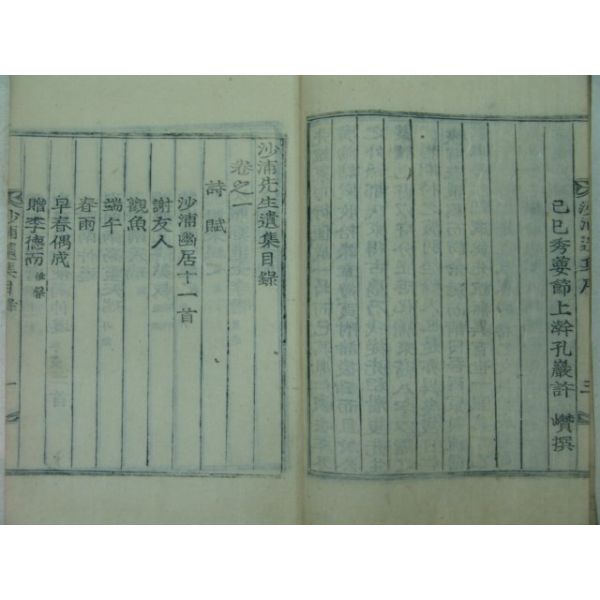 己巳秀葽節上澣孔巖許 巑撰
沙浦遺集序 三
沙浦先生遺集目錄
卷之一
詩賦
沙浦幽居十一首
謝友人
觀魚
端午
春雨
早春偶成
贈李德而
沙浦遺集目錄 一